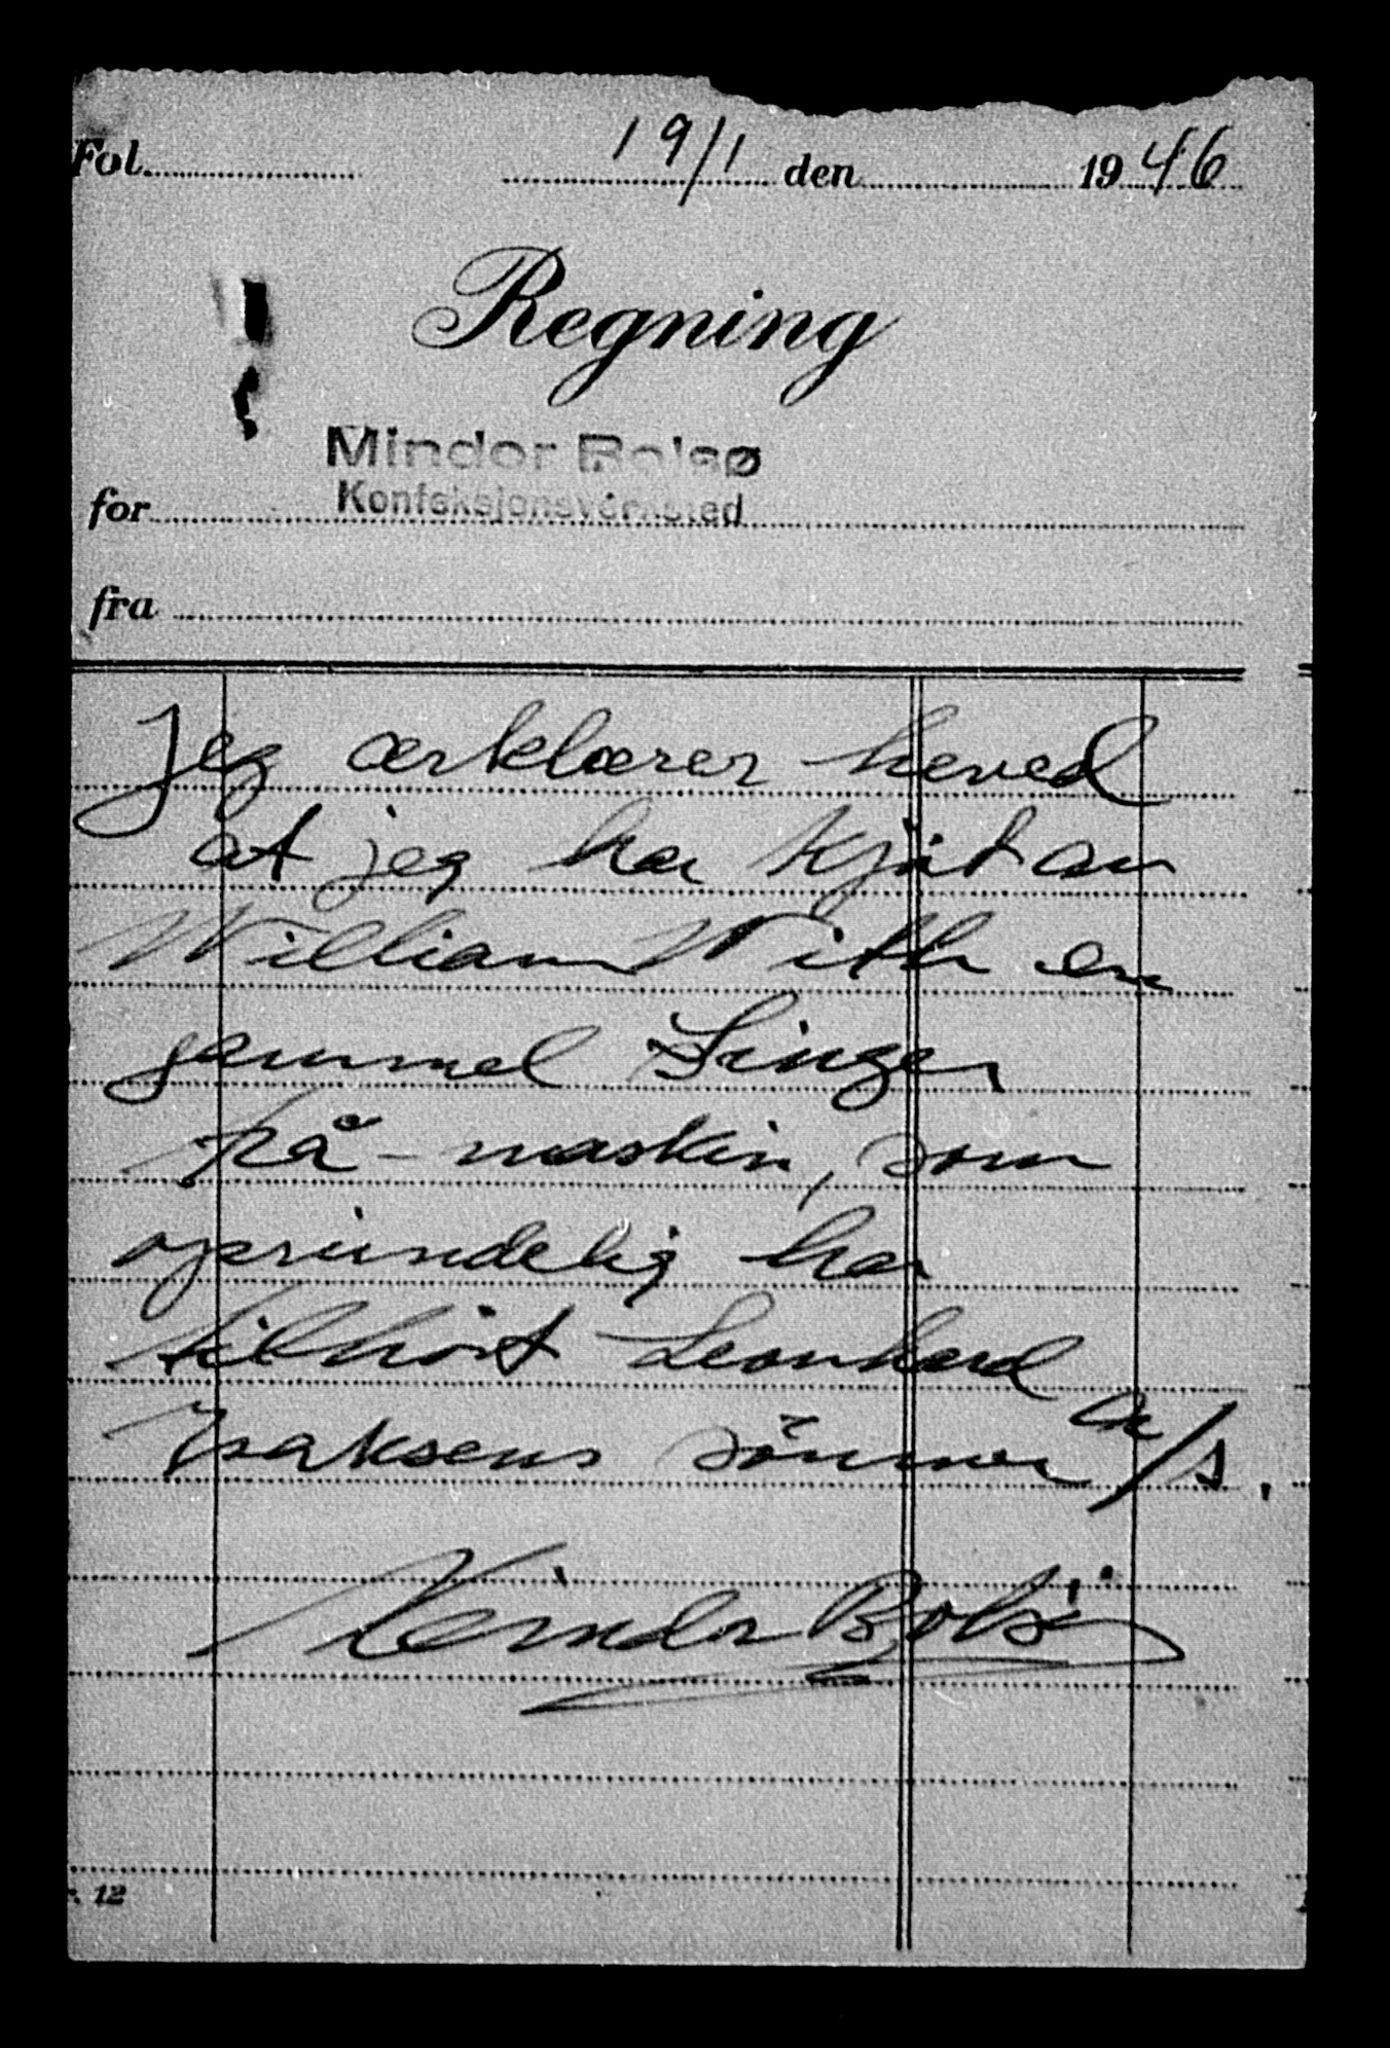 Fol. 19/1 den 1946
Regning
Mindor Bolsø
for Konfeksjonsverksted
fra
Jeg ærklærer herved
at jeg har kjøt av
William With en
gammel Singer
hå-maskin, som
oprindelig har
tilhört Leonhard
Isaksens sönner A/S.
Mindor Bolsö
. 12